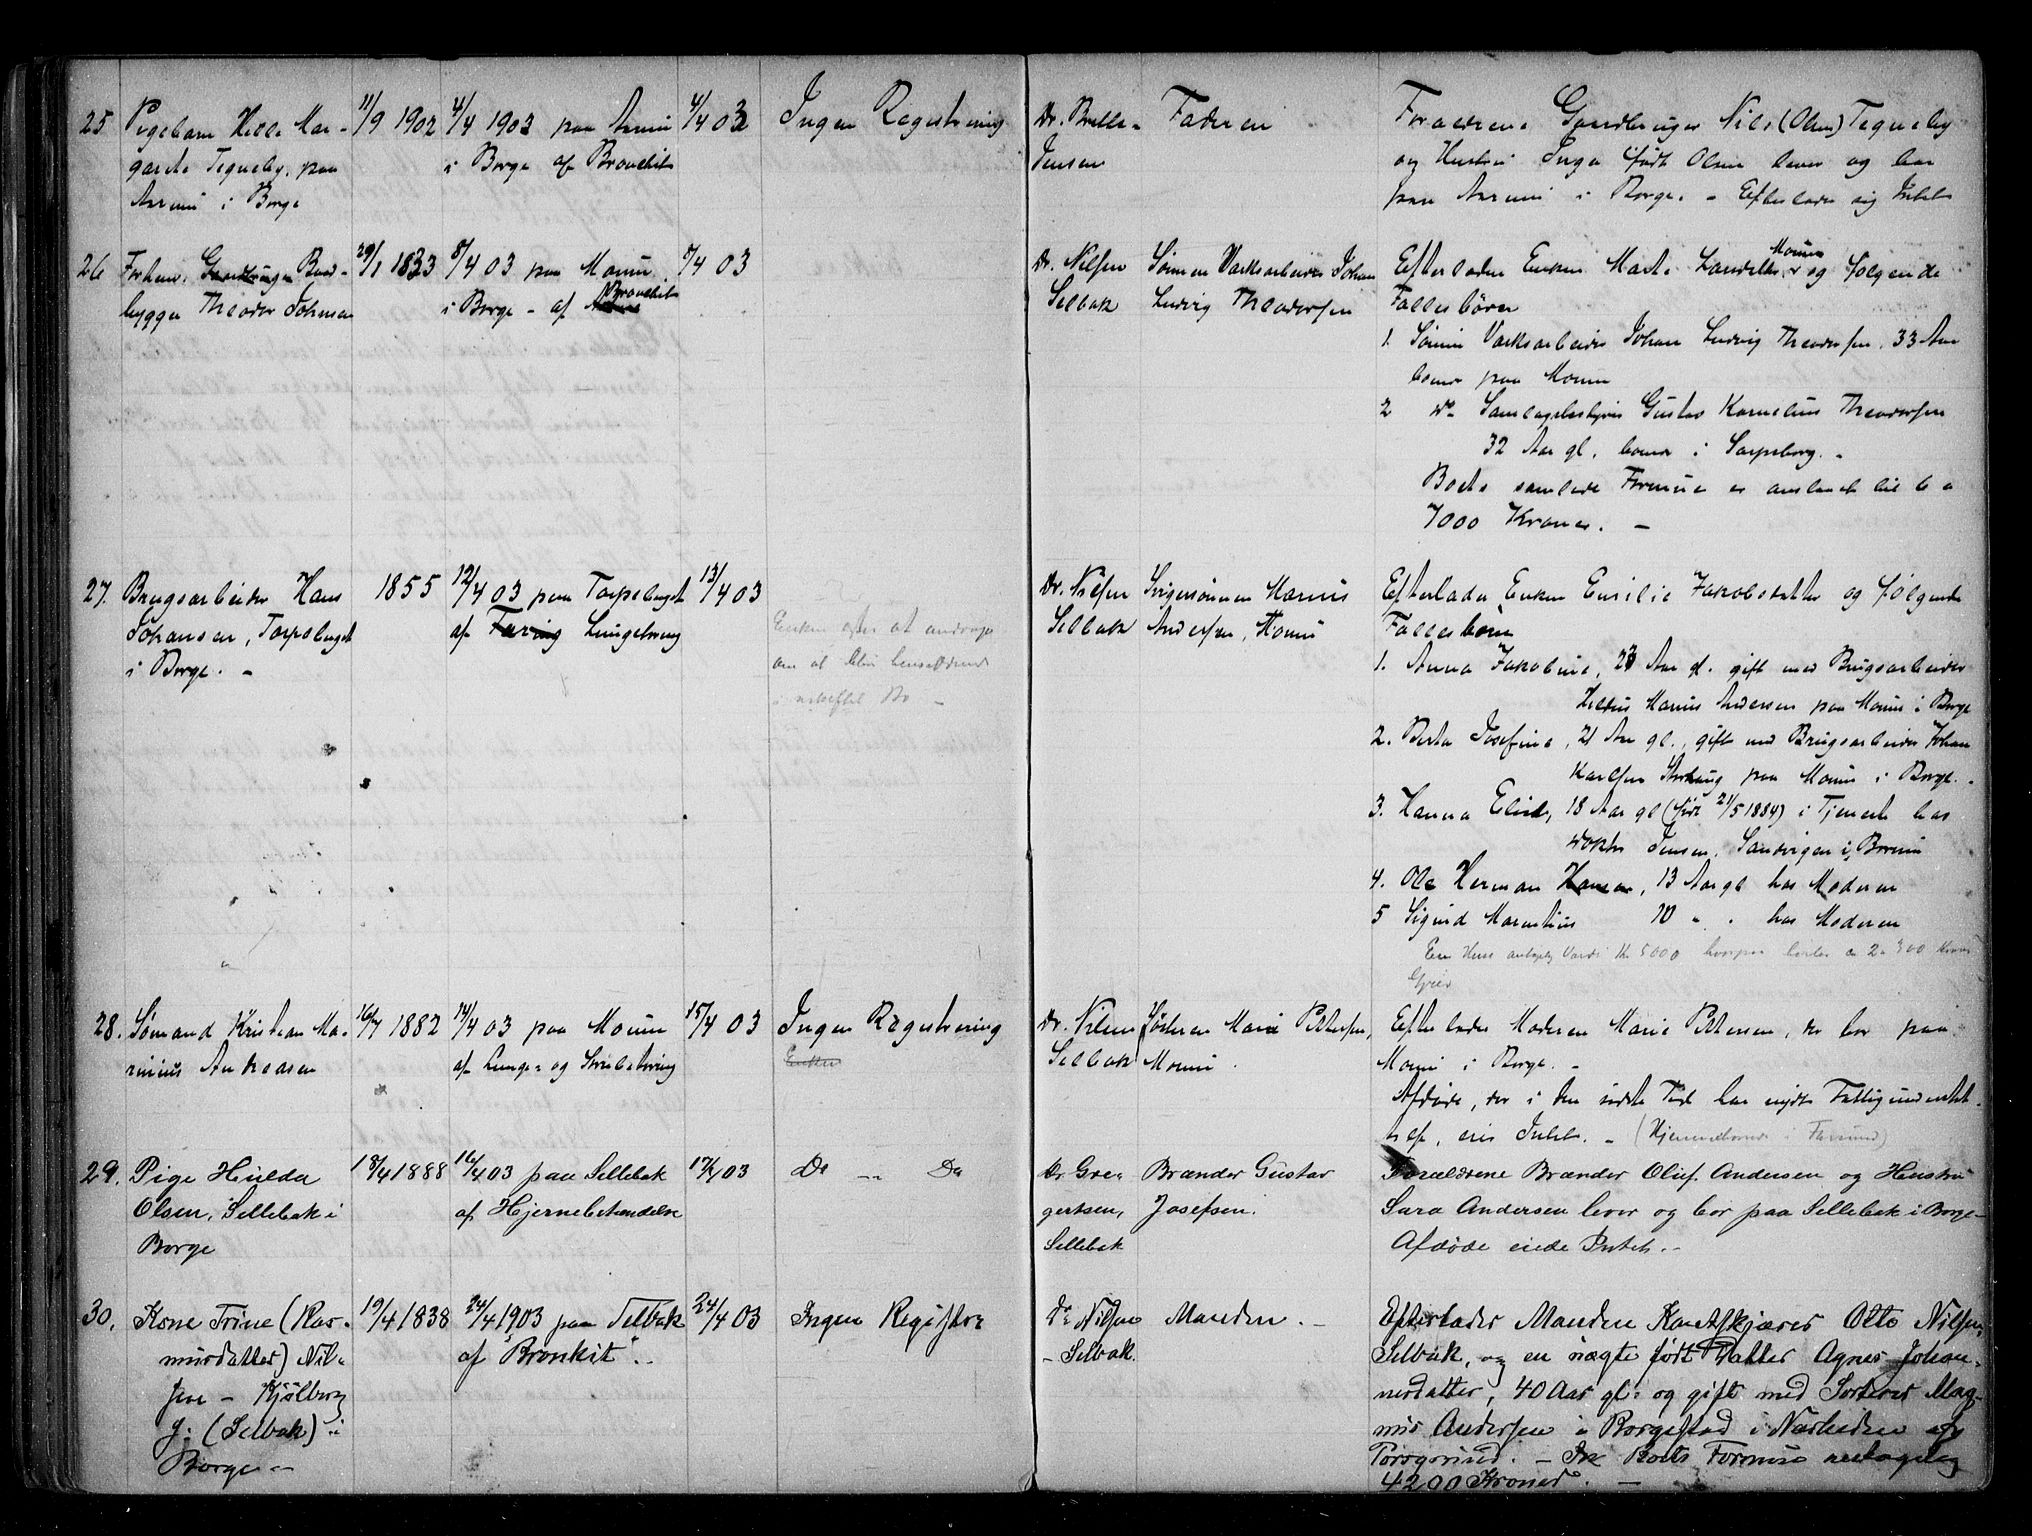 25 Pigebarn Helle Mar-
garete Tegneby, paa
Aarum i Borge
11/9 1902
4/4 1903 paa Aarum
i Borge af Bronchit
4/4 03
Ingen Registrering
Dr. Brekke-
Jensen
Faderen
Forældrene Gaardbruger Nils (Olsen) Tegneby
og Hustru Inga født Olsen lever og bor
paa Aarum i Borge. - Efterlader sig Intet
26 Forhenv. Baad-
bygger Theodor Johnsen
29/1 1833
8/4 03 paa Moum
i Borge - af Bronchit
9/4 03
Dr. Nilsen
Selbak
Sønnen Værksarbeider Johan
Ludvig Theodorsen
Efterlader Enken Marte Moum og følgende
Fællesbørn
1. Sønnen Værksarbeider Johan Ludvig Theodorsen, 33 Aar
boende paa Moum
2 do Samlagsbestyrer Gustav Kornelius Theodorsen
32 Aar gl, boende i Sarpsborg. -
Boets samlede Formue er anslaaet til ca
7000 Kroner. -
27. Brugsarbeider Hans
Johansen, Torpeberget
i Borge. -
1855
12/4 03 paa Torpeberget
af Tæring Lungetæring
13/4 03
Enken agter at andrage
om at blive hensiddende
i uskiftet Bo -
Dr. Nilsen
Selbak
Svigersønnen Marius
Andersen, Moum
Efterlader Enken Emilie Jakobsdatter og følgende
Fællesbørn
1. Anna Jakobine, 23 Aar gl. gift med Brugsarbeider
Marius Andersen paa Moum i Borge
2. Berta Josefine, 21 Aar gl., gift med Brugsarbeider Johan
Karlsen paa Moum i Borge. -
3. Hanna Elise, 18 Aar gl (født 21/5 1884) i Tjeneste hos
Doktor Jensen, Sandvigen i Borge
4. Ole Herman Hansen, 13 Aar gl hos Moderen
5 Sigurd Marentius 10 " " hos Moderen
Een Huus antagelig Værdi Kr 5000 hvorpaa hviler ca 2-300 Kroner
Gjæld
28. Sømand Kristian Ma-
rinius Andersen
16/7 1882
14/4 03 paa Moum
af Lunge- og Strubetæring
15/4 03
Ingen Registrering
Enken
Dr. Nilsen
Selbak
Søsteren Marie Pettersen,
Moum.
Efterlader Moderen Marie Pettersen, der bor paa
Moum i Borge. -
Afdøde, der i den sidste Tid har nydt Fattigunderstøt-
telse, eier Intet. - (Hjemmehørende i Farsund)
29. Pige Hulda
Olsen, Sellebak i
Borge
18/4 1888
16/4 03 paa Sellebak
af Hjernebetændelse
17/4 03
Do -"- Do
Dr. Gre-
gertsen,
Sellebak
Brænder Gustav
Josefsen.
Forældrene Brænder Oluf Andersen og Hustru
Sara Andersen lever og bor paa Sellebak i Borge -
Afdøde eiede Intet. -
30. Kone Trine (Ras-
musdatter) Nil-
sen - Kjølberg
g: (Selbak) i
Borge -
19/4 1838
24/4 1903 paa Selbak
af "Bronkit". -
24/4 03
Ingen Registre
Dr Nilsen
- Selbak.
Manden. -
Efterlader Manden Otto Nilsen,
Selbak, og en uægte født Datter Agnes Johan-
nesdatter, 40 Aar gl: og gift med Sorterer Mag-
nus Andersen i Borgestad i Nærheden af
Porsgrund. - Boets Formue antagelig
4200 Kroner. -